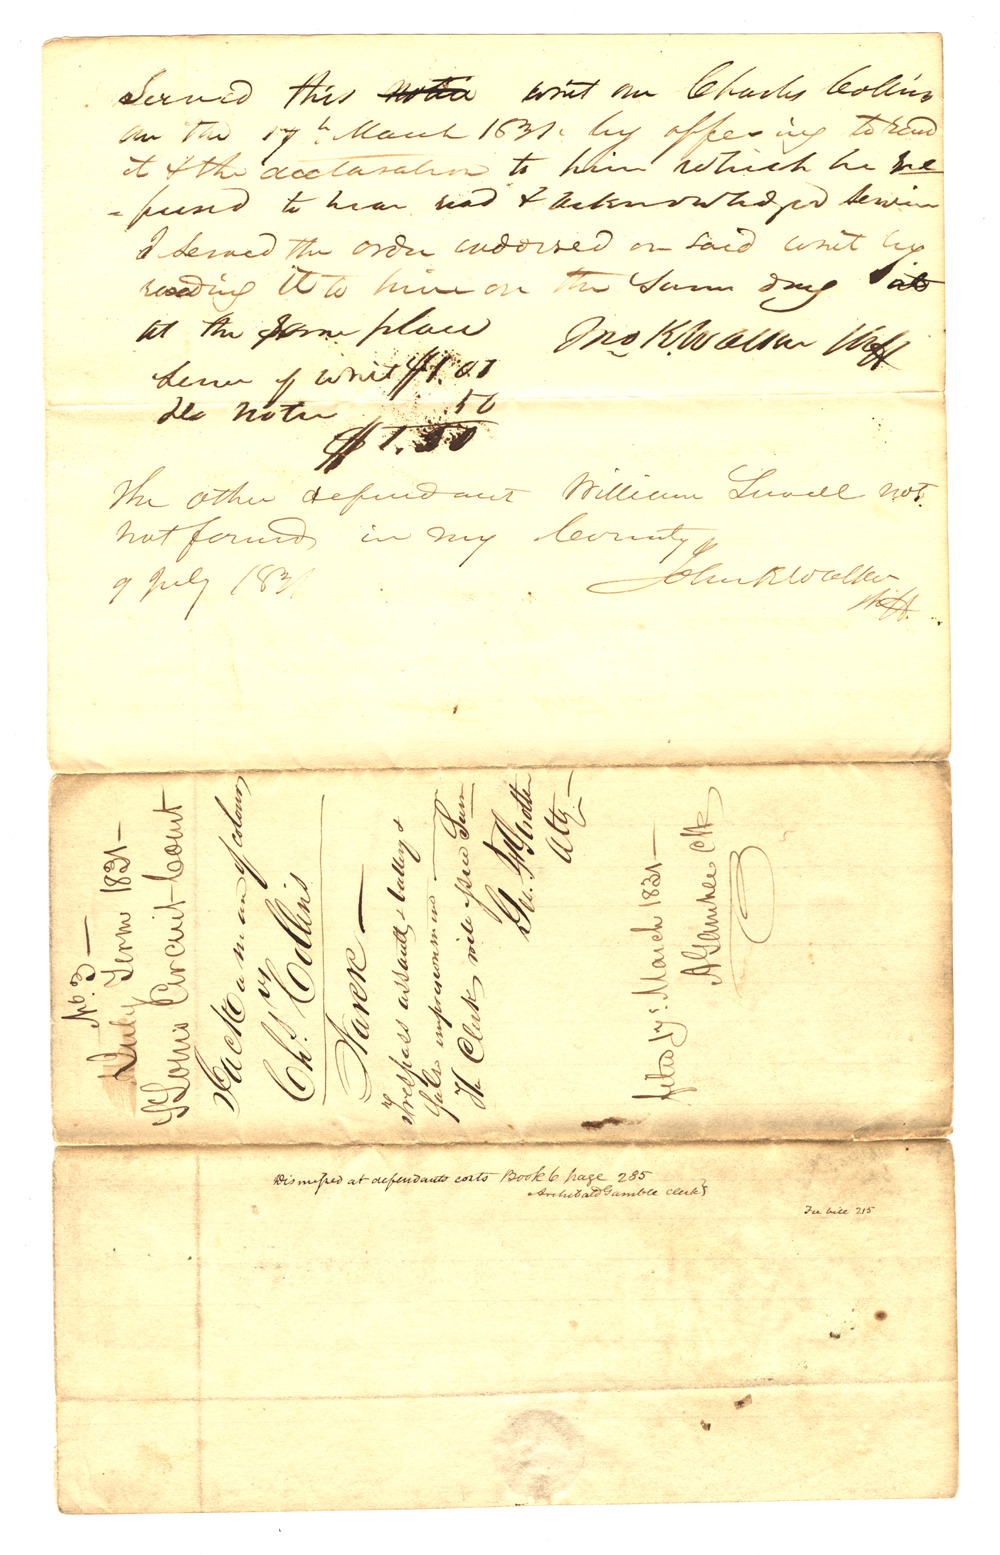 Served this notice writ on Charles Collins
on the 17th March 1831. by offering to read
it & the declaration to him which he re
-fused to hear read & acknowledged service
I served the order endorsed on said writ by
reading it to him on the same day at
at the same place Jno K. Walker Shff
Service of writ $1.00
do notice .50
$1.50
The other defendant William not
not found in my County
9 July 1831 John K Walker
Shff.
No. 3 —
July Term 1831 —
St Louis Circuit Court
Jack a man of colour
vs
Chs. Collins
Narr —
Trespass assault, battery &
false imprisonment —
The Clerk will issue Sum
Gu. F Strother
Atty —
March 1831 —
A Gamble Clk
Dismissed at defendants costs Book 6 page 285
Archibald Gamble clerk
Fee bill 215